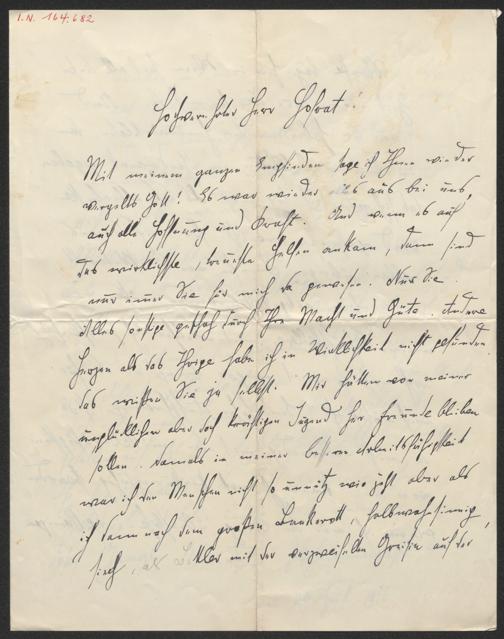 I.N. 164.682
Hochverehrter Herr Hofrat!
Mit meinem ganzen Empfinden sage ich Ihnen wieder
vergelts Gott! Es war wieder alles aus bei uns,
auch alle Hoffnung und Kraft. Und wenn es auf
das wirklichste, treueste Helfen ankam, dann sind
nur immer Sie für mich da gewesen. Nur Sie.
Alles sonstige geschah durch Ihre Macht und Güte. Andere
Herzen als das Ihrige habe ich in Wirklichkeit nicht gefunden
das wissen Sie ja selbst. Mir hätten von meiner
unglücklichen aber doch kräftigen Jugend her Freunde bleiben
sollen. Damals in meiner besseren Arbeitsfähigkeit
war ich den Menschen nicht so unnütz wie jetzt aber als
ich dann nach dem großen Bankerott, halbwahnsinnig,
siech, als mit der verzweifelten Greisin auf der